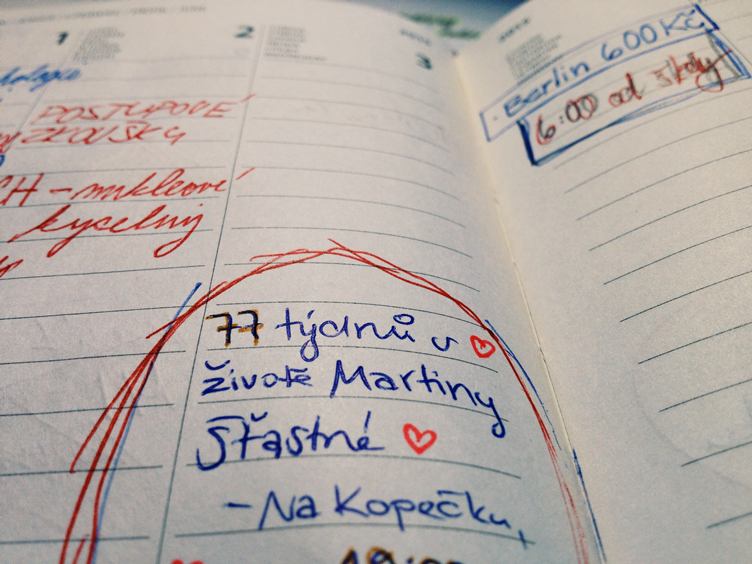 1
2
3
Berlin 600 Kč
6:00 od školy
POSTUPOVÉ
ZKOUŠKY
CH - nukleové
kyseliny
77 týdnů v
životě Martiny
Šťastné
- Na Kopečku,